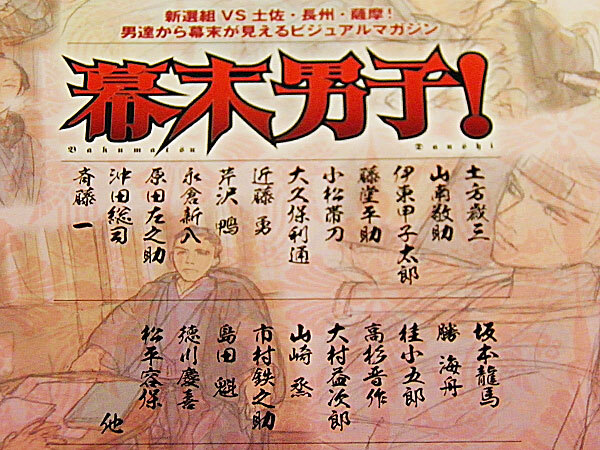 新選組VS土佐・長州・薩摩！
男達から幕末が見えるビジュアルマガジン
幕末男子！
Bakumatsu Danshi
土方歳三
山南敬助
伊東甲子太郎
藤堂平助
小松帯刀
大久保利通
近藤勇
芹沢鴨
永倉新八
原田左之助
沖田総司
斉藤一
坂本龍馬
勝海舟
桂小五郎
高杉晋作
大村益次郎
山崎烝
市村鉄之助
島田魁
徳川慶喜
松平容保
他